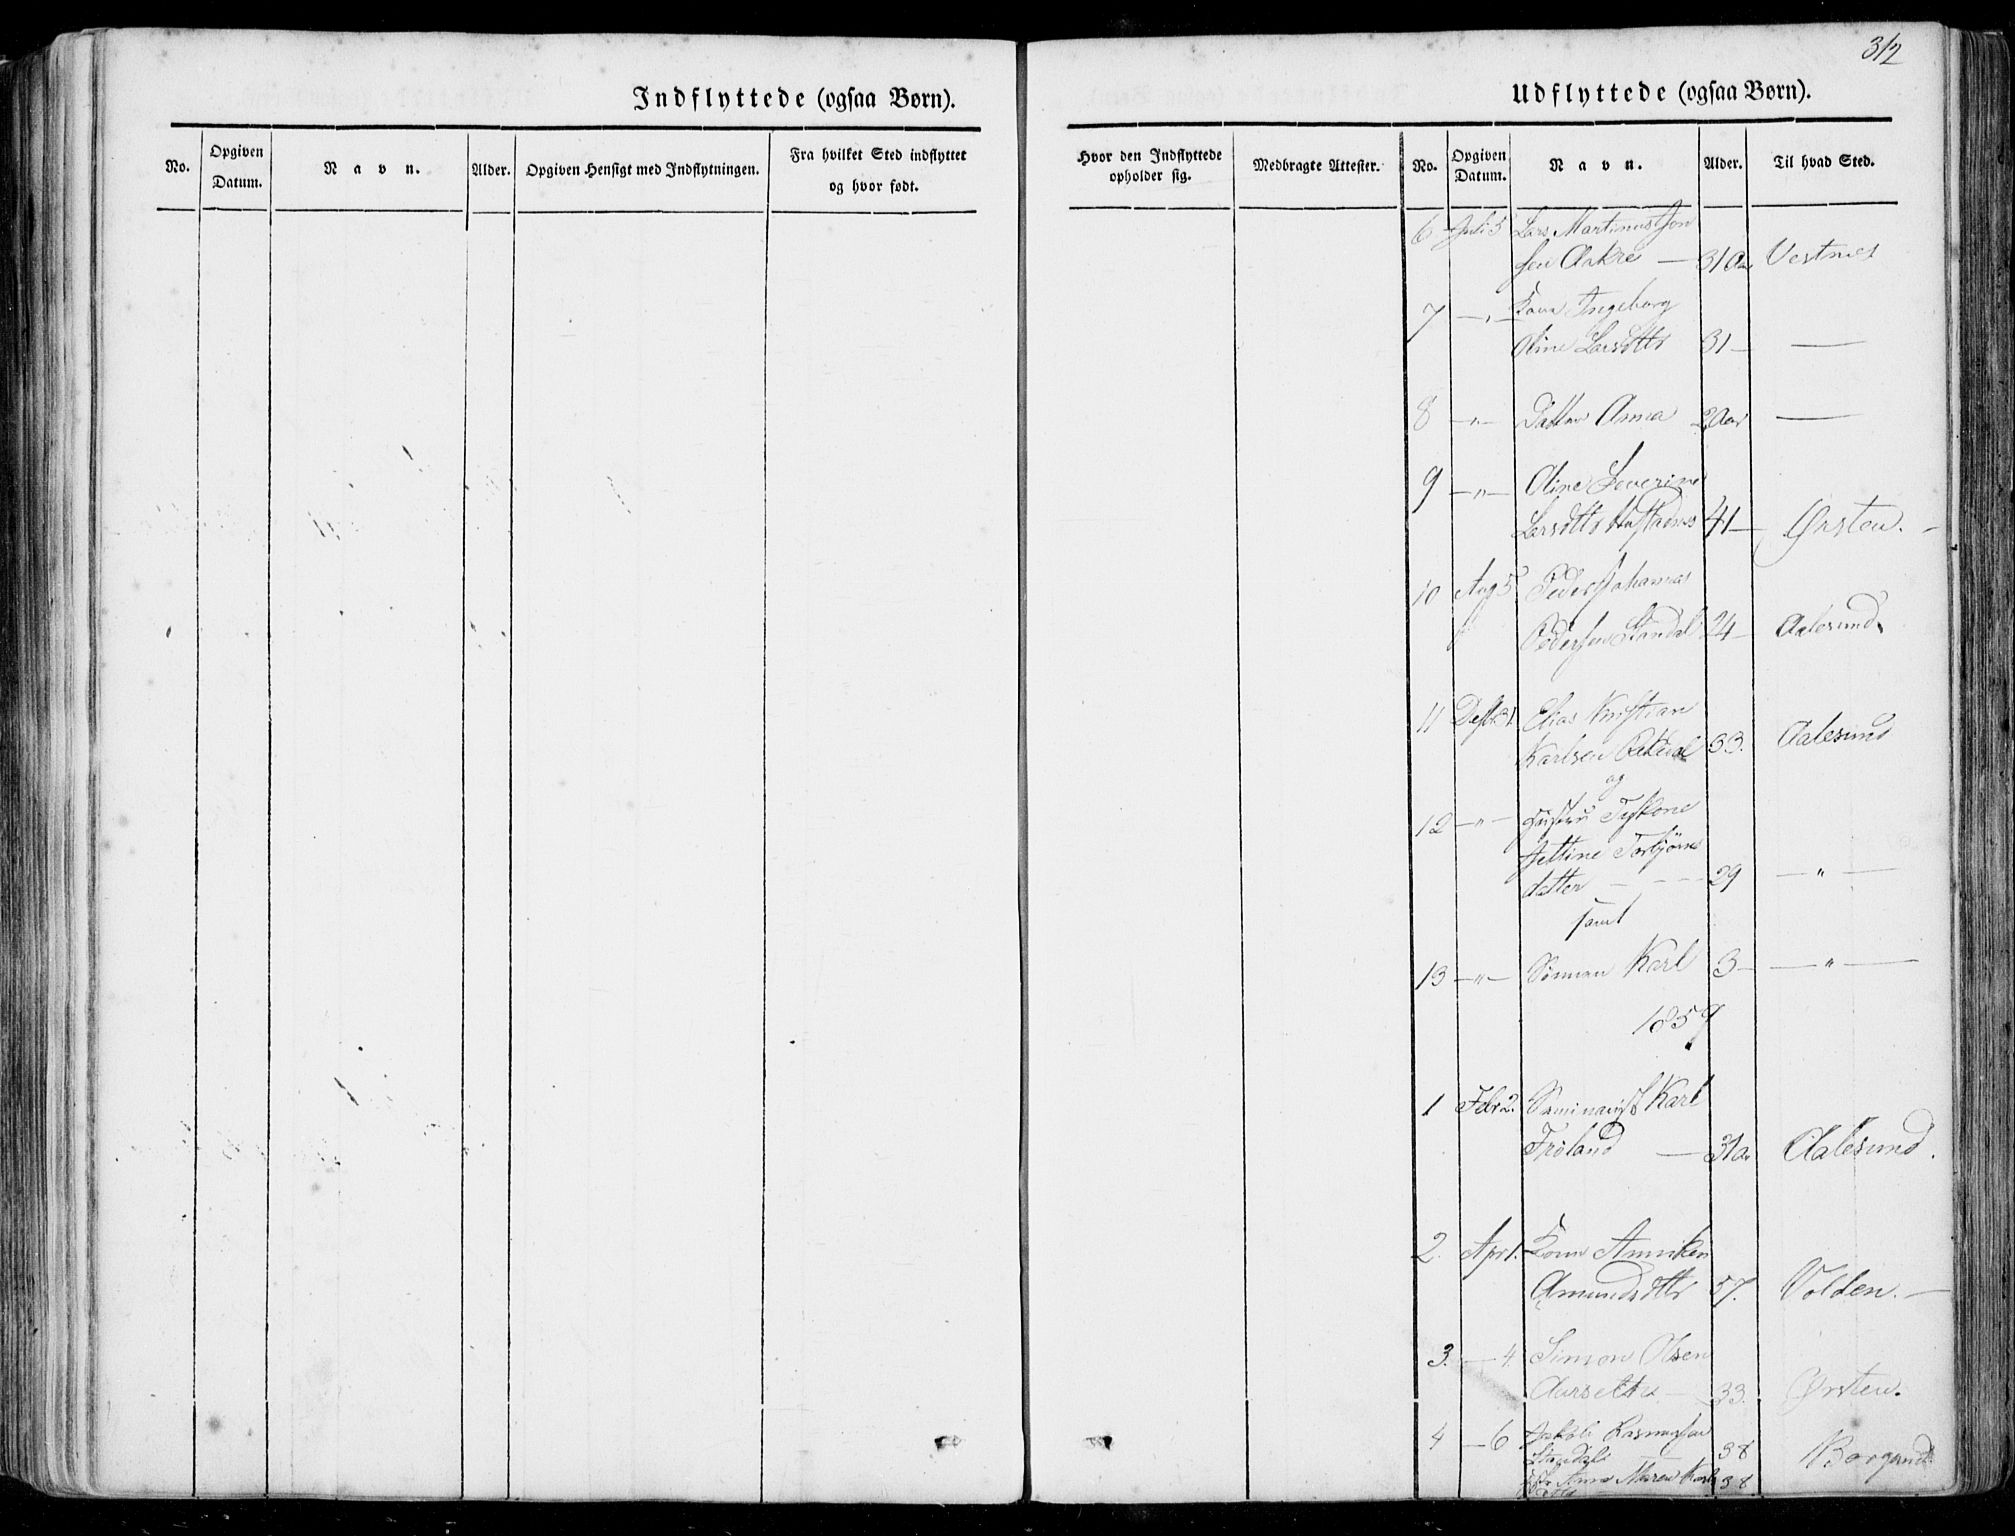 312
Indflyttede (ogsaa Børn).
No.
Opgiven Datum.
Navn.
Alder.
Opgiven Hensigt med Indflytningen.
Fra hvilket Sted indflyttet
og hvor født.
Udflyttede (ogsaa Børn).
Hvor den Indflyttede
opholder sig.
Medbragte Attester.
No.
Opgiven
Datum.
Navn.
Alder.
Til hvad Sted.
6 Juli 5 Lars Martinus Jon
sen Aakre — 31 Aar Vestnes
7 — " — Kone Ingeborg
Oline Larsdttr 31 — ——
8 — " — Datter Anna 2 Aar ——
9 — " — Oline Severine
Larsdttr 41 — Ørsten. —
10 Aug 5 Peder Johannes
Pedersen Standal 24 — Aalesund.
11 31. Elias Kristian
Karlsen 33. Aalesund
og
12 — " —
Jettine Torbjørns
datter — — — 29 — " —
samt
13 — " — Sønnen Karl 3 — — " —
1859
1 Febr 2. Seminarist Karl
Frøland — 31 Aar Aalesund.
2. Apr 1. Kone Anniken
Amundsdttr 57. Volden. —
3. — 4. Simon Olsen
Aursether — 33. Ørsten.
4 — 6 Jakob Rasmussen
Standal 38 Borgund
Anna Maren Karls
38